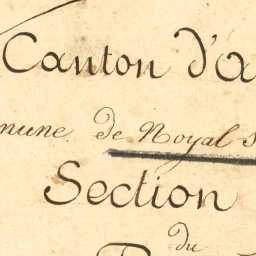 Canton d'a
mune de Noyal s
Section
du